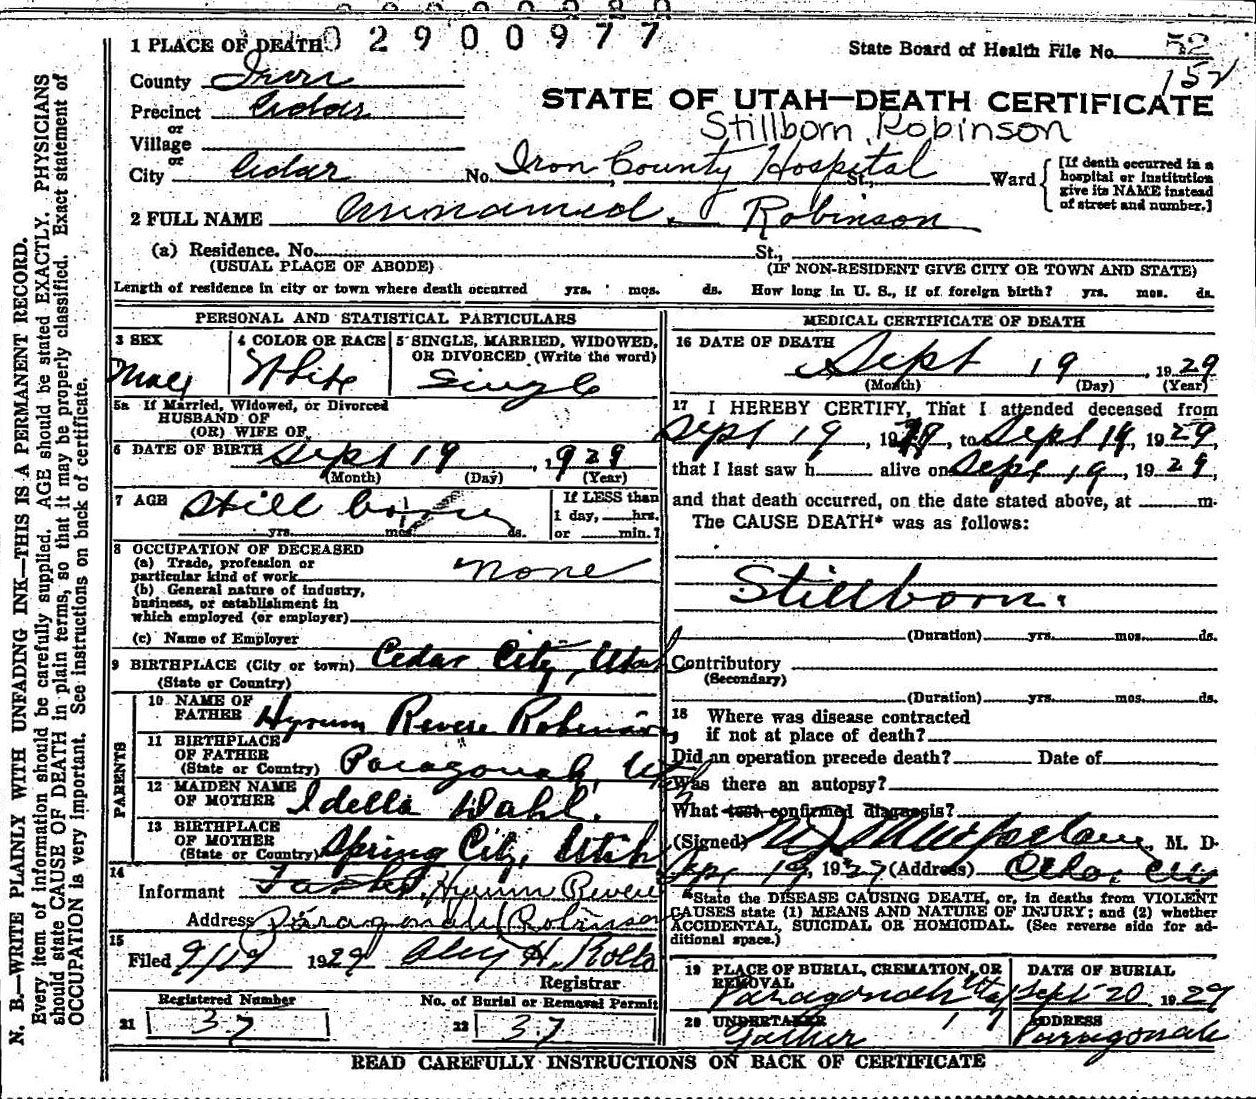 0 2 9 0 0 9 7 7
1 PLACE OF DEATH
State Board of Health File No. 52
152
County Iron
STATE OF UTAH—DEATH CERTIFICATE
Precinct Cedar
Stillborn Robinson
or
Village
or
City Cedar No. Iron County Hospital St., Ward
[If death occurred in a
hospital or institution
give its NAME instead
of street and number.]
2 FULL NAME Unnamed Robinson
(a) Residence. No. St.,
(USUAL PLACE OF ABODE) (IF NON-RESIDENT GIVE CITY OR TOWN AND STATE)
Length of residence in city or town where death occurred yrs. mos. ds. How long in U. S., if of foreign birth? yrs. mos. ds.
PERSONAL AND STATISTICAL PARTICULARS
3 SEX
Male
4 COLOR OR RACE
White
5 SINGLE, MARRIED, WIDOWED,
OR DIVORCED (Write the word)
Single
5a If Married, Widowed, or Divorced
HUSBAND OF
(OR) WIFE OF
6 DATE OF BIRTH Sept 19, 1929
(Month) (Day) (Year)
7 AGE Still born
yrs. mos. ds.
If LESS than
1 day, hrs.
or min.?
8 OCCUPATION OF DECEASED
(a) Trade, profession or
particular kind of work none
(b) General nature of industry,
business, or establishment in
which employed (or employer)
(c) Name of Employer
9 BIRTHPLACE (City or town) Cedar City, Utah
(State or Country)
PARENTS
10 NAME OF
FATHER Hyrum Revere Robinson
11 BIRTHPLACE
OF FATHER
(State or Country) Paragonah, Utah
12 MAIDEN NAME
OF MOTHER Idella Dahl.
13 BIRTHPLACE
OF MOTHER
(State or Country) Spring City, Utah
14
Informant Father, Hyrum Revere
Address Paragonah (Robinson
15
Filed 9/19 1929 H. Rollo
Registrar
Registered Number
21 37
No. of Burial or Removal Permit
22 37
MEDICAL CERTIFICATE OF DEATH
16 DATE OF DEATH
Sept 19, 1929
(Month) (Day) (Year)
17 I HEREBY CERTIFY, That I attended deceased from
Sept 19, 1929, to Sept 19, 1929,
that I last saw h alive on Sept 19, 1929,
and that death occurred, on the date stated above, at m.
The CAUSE DEATH* was as follows:
Stillborn.
(Duration) yrs. mos. ds.
Contributory
(Secondary)
(Duration) yrs. mos. ds.
18 Where was disease contracted
if not at place of death?
Did an operation precede death? Date of
Was there an autopsy?
What test confirmed diagnosis?
(Signed) Macfarlane, M. D.
Sept 19, 1929 (Address) Cedar City
*State the DISEASE CAUSING DEATH, or, in deaths from VIOLENT
CAUSES state (1) MEANS AND NATURE OF INJURY; and (2) whether
ACCIDENTAL, SUICIDAL OR HOMICIDAL. (See reverse side for ad-
ditional space.)
19 PLACE OF BURIAL, CREMATION, OR
REMOVAL
Paragonah Utah
DATE OF BURIAL
Sept 20 1929
20 UNDERTAKER
Father
ADDRESS
Paragonah
READ CAREFULLY INSTRUCTIONS ON BACK OF CERTIFICATE
N. B.—WRITE PLAINLY WITH UNFADING INK—THIS IS A PERMANENT RECORD.
Every item of information should be carefully supplied. AGE should be stated EXACTLY. PHYSICIANS
should state CAUSE OF DEATH in plain terms, so that it may be properly classified. Exact statement of
OCCUPATION is very important. See instructions on back of certificate.